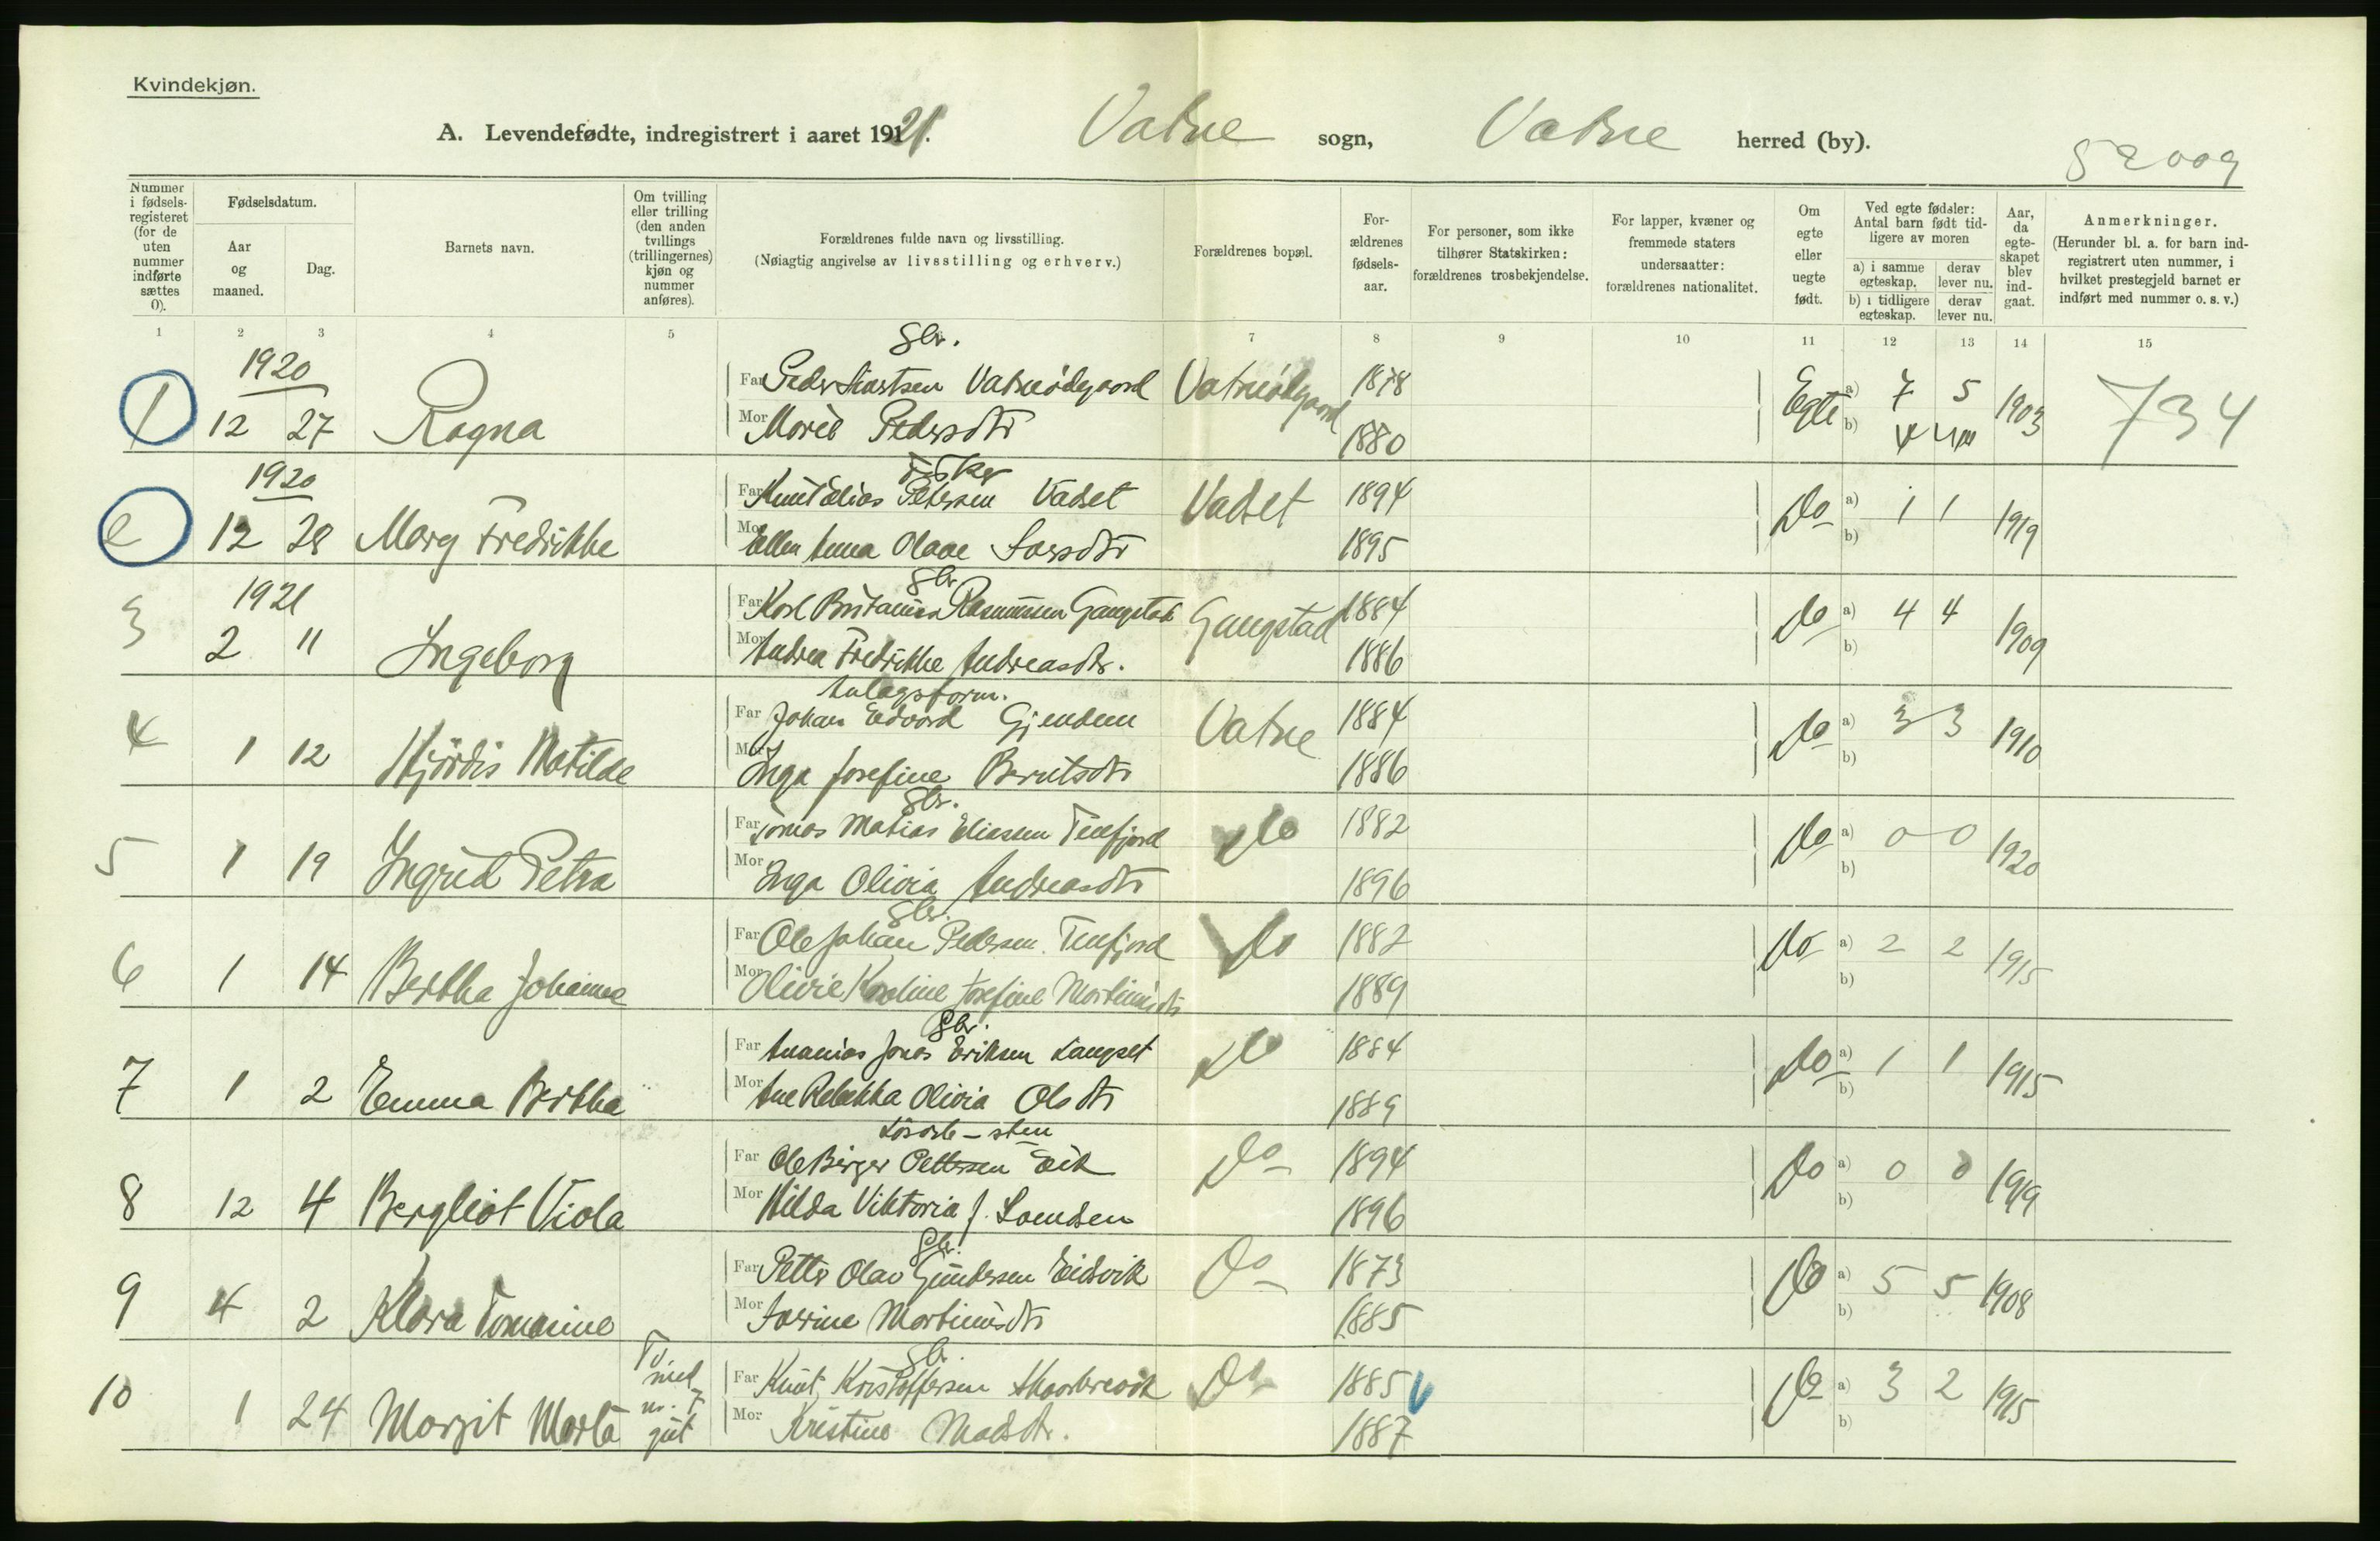 Kvindekjøn.
A. Levendefødte, indregistrert i aaret 1921. Vatne sogn, Vatne herred (by).
52009
Nummer i fødselsregisteret (for de uten nummer indførte sættes 0).
Fødselsdatum.
Aar og maaned.
Dag.
Barnets navn.
Om tvilling eller trilling (den anden tvillings (trillingernes) kjøn og nummer anføres).
Forældrenes fulde navn og livsstilling.
(Nøiagtig angivelse av livsstilling og erhverv.)
Forældrenes bopæl.
Forældrenes fødselsaar.
For personer, som ikke tilhører Statskirken: forældrenes trosbekjendelse.
For lapper, kvæner og fremmede staters undersaatter: forældrenes nationalitet.
Om egte eller uegte født.
Ved egte fødsler: Antal barn født tidligere av moren
a) i samme egteskap. derav lever nu.
b) i tidligere egteskap. derav lever nu.
Aar, da egteskapet blev indgaat.
Anmerkninger.
(Herunder bl. a. for barn indregistrert uten nummer, i hvilket prestegjeld barnet er indført med nummer o. s. v.)
1 2 3 4 5 7 8 9 10 11 12 13 14 15
1920 Gbr.
1 12 27 Ragna Far Peder Vatneødegaard Vatneødegaard 1878 Egte a) 7 5 1903 734
Mor Pedersdtr 1880 b)
1920 Fisker
2 12 28 Mary Fredrikke Far Knut Elias Petersen Vadset Vadset 1894 Do a) 1 1 1919
Mor Ellen Anna Olave Larsdtr 1895 b)
1921 Gbr
3 2 11 Ingeborg Far Karl Rasmussen Gangstad Gangstad 1884 Do a) 4 4 1909
Mor Andrea Fredrikke Andreasdtr. 1886 b)
Anlægsform.
4 1 12 Hjördis Matilde Far Johan Edvard Gjendem Vatne 1884 Do a) 3 3 1910
Mor Inga Josefine Berntsdtr 1886 b)
Gbr.
5 1 19 Ingrid Petra Far Tomas Matias Eliasen Tenfjord Do 1882 Do a) 0 0 1920
Mor Inga Olivia Andreasdtr 1896 b)
Gbr.
6 1 14 Bertha Johanne Far Ole Johan Pedersen Tenfjord Do 1882 Do a) 2 2 1915
Mor Olivie Karoline Josefine Martinusdtr 1889 b)
Gbr.
7 1 2 Emma Bertha Far Ananias Jonas Eriksen Langset Do 1884 Do a) 1 1 1915
Mor Ane Rebekka Olivia Olsdtr 1889 b)
8 12 4 Bergliot Viola Far Ole Birger Pettersen Eik Do 1894 Do a) 0 0 1919
Mor Hilda Viktoria f. 1896 b)
Gbr.
9 4 2 Klara Tomanine Far Petter Olav Gundersen Eidsvik Do 1873 Do a) 5 5 1908
Mor Martinusdtr 1885 b)
Gbr.
10 1 24 Margit Marta Tv. med nr. 7 gut Far Knut Kristoffersen Do 1885 Do a) 3 2 1915
Mor Kristine Madsdtr. 1887 b)